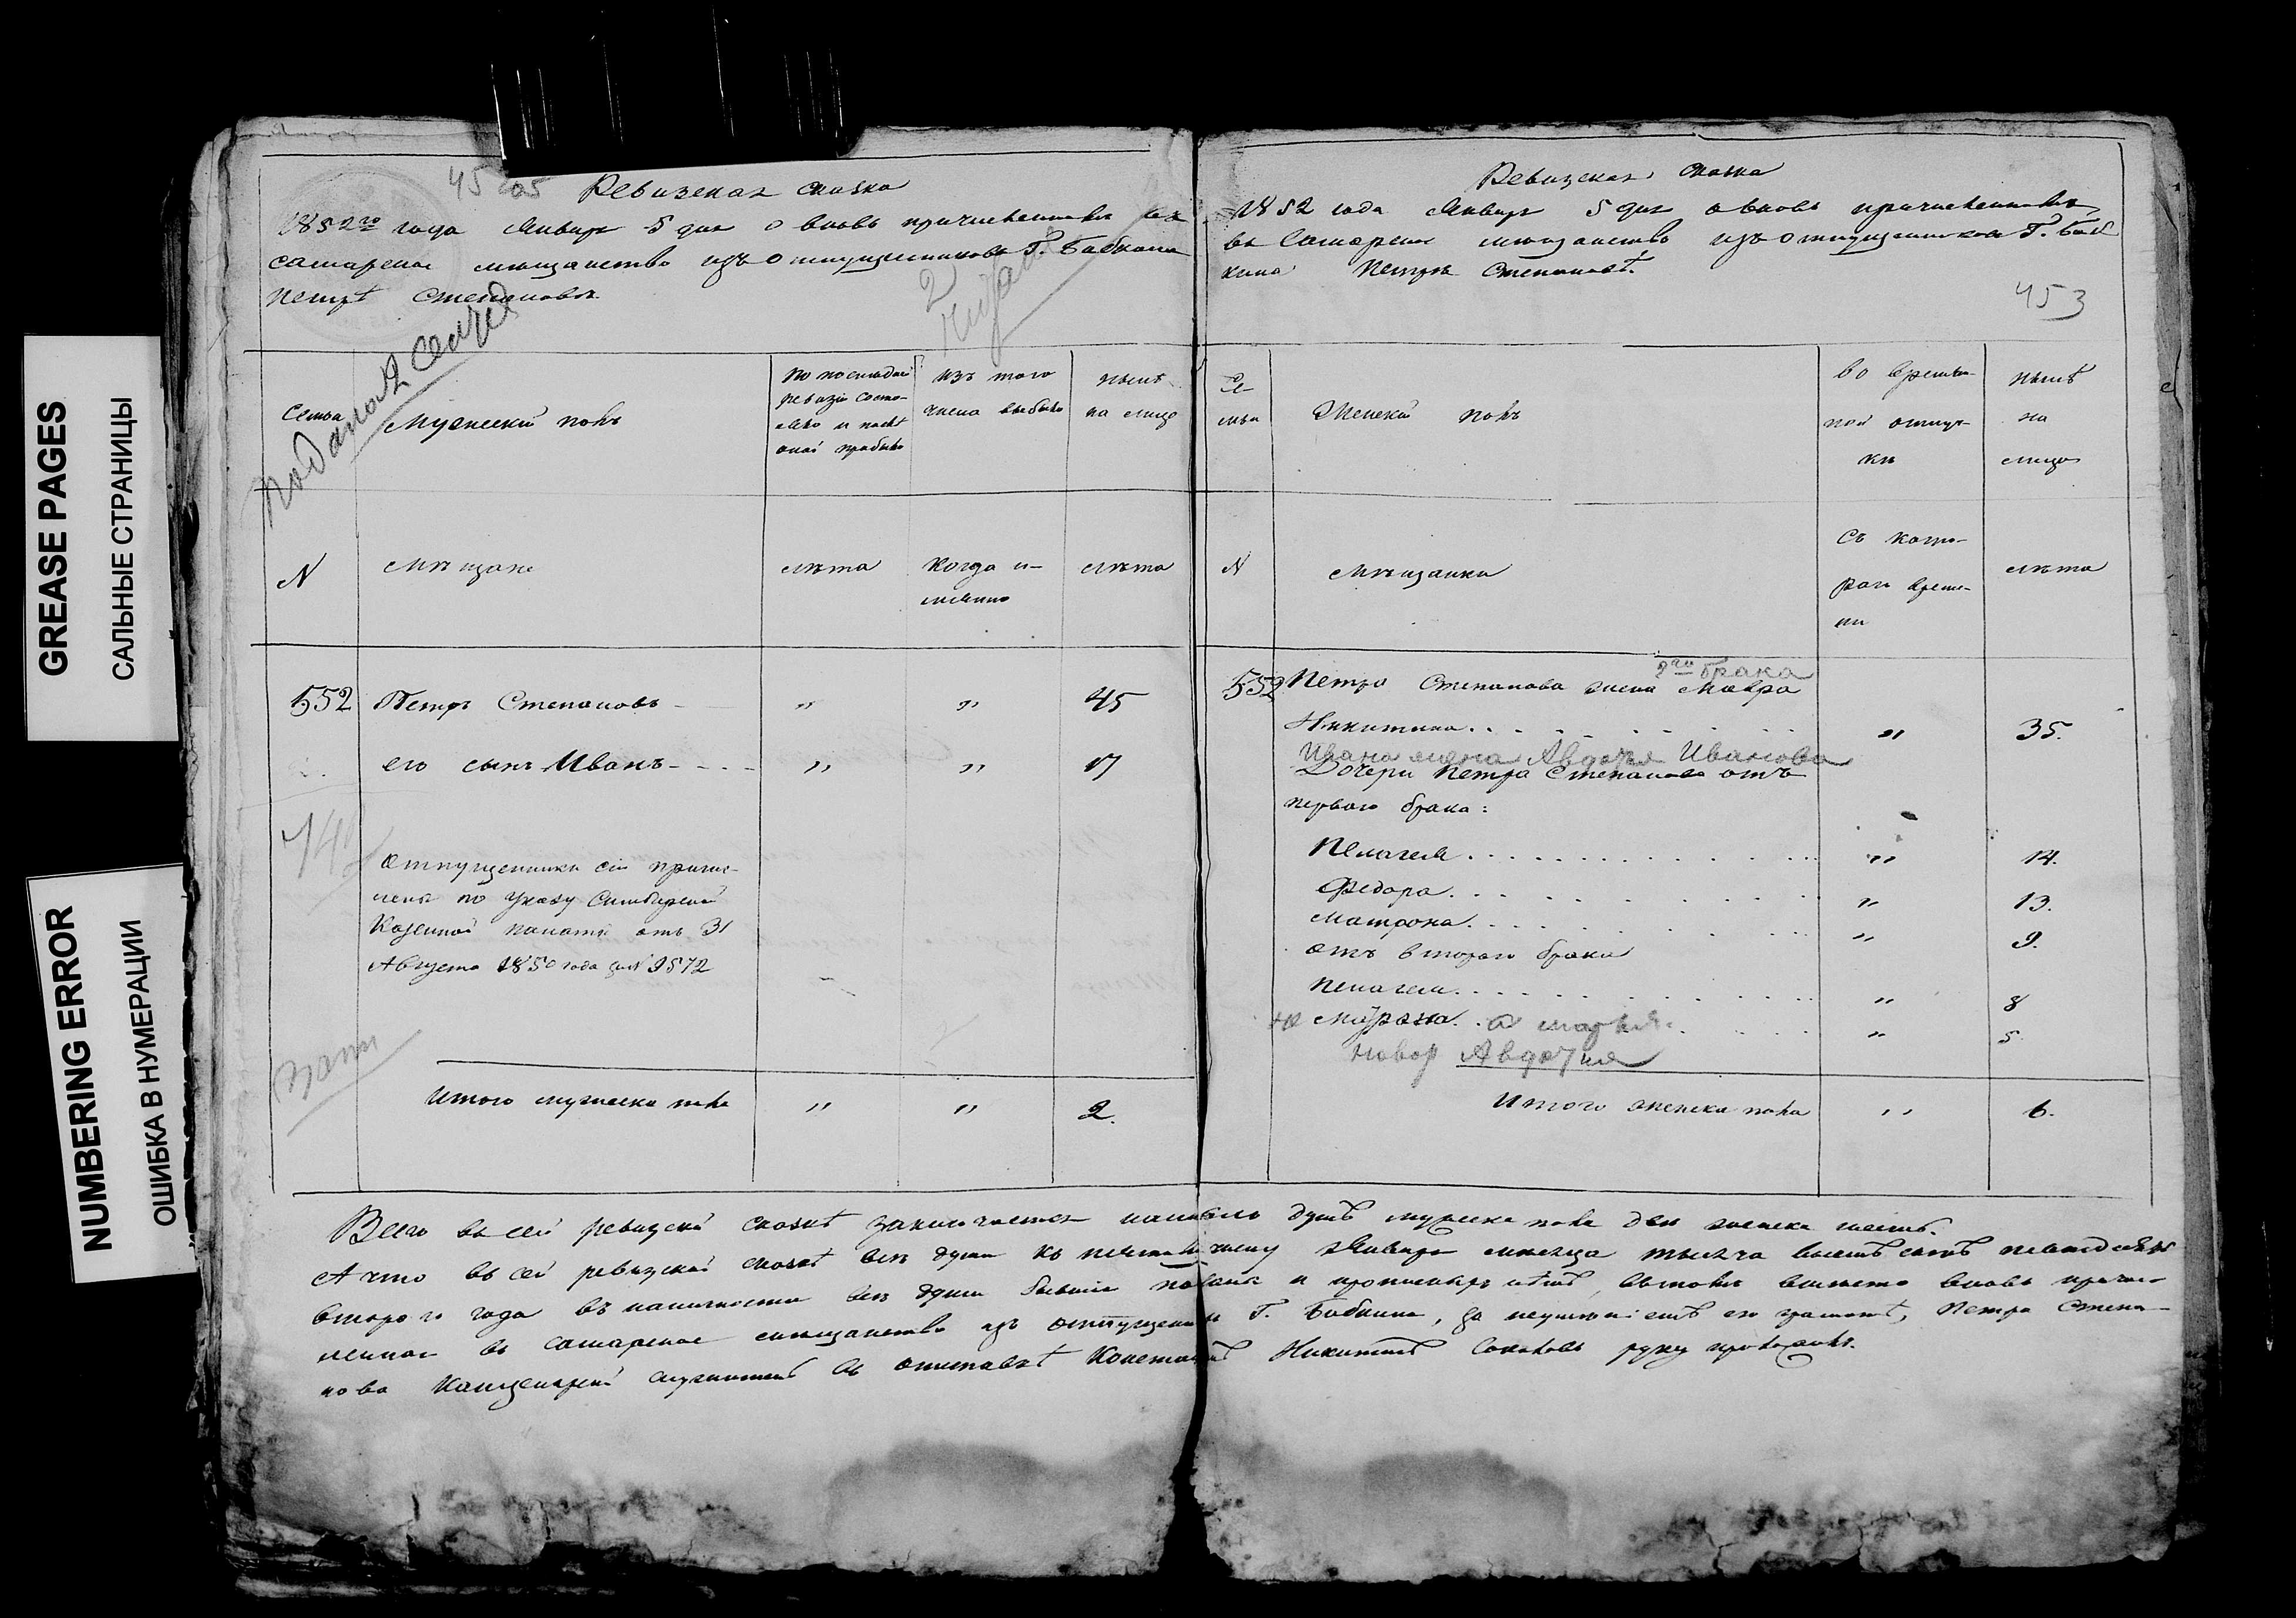 GREASE PAGES
САЛЬНЫЕ СТРАНИЦЫ
NUMBERING ERROR
ОШИБКА В НУМЕРАЦИИ
Ревизская сказка
1852го года Января 5 дня о вновь причисленномъ въ
самарское мѣщанство изъ отпущенниковъ Г. Бабкина
Петрѣ Степановѣ.
Подана 2 Сенр
Семья
Мужеский полъ
По последней
ревизіи состо-
яло и послѣ
оной прибыло
Изъ того
числа выбыло
нынѣ
на лицо
N
Мѣщане
лѣта
Когда и-
менно
лѣта
552
Петръ Степановъ
"
"
45
его сынъ Иванъ
"
"
17
Отпущенники сіи причис-
лены по Указу Симбирской
Казенной палаты отъ 31
Августа 1850 года за N 9572
Итого мужеска пола
"
"
2.
Ревизская сказка
1852 года Января 5 дня о вновь причисленномъ
въ Самарское мѣщанство изъ отпущенниковъ Г. Баб
кина Петрѣ Степановѣ.
453
Се-
мья
Женский полъ
во времен-
ной отлуч-
кѣ
нынѣ
на
лицо
N
Мѣщанки
Съ кото-
раго време-
ни
лѣта
2го брака
552
Петра Степанова жена Мавра
Никитина
"
35.
Ивана жена Авдотья Иванова
Дочери Петра Степанова отъ
перваго брака:
Пелагея
"
14.
Федора
"
13.
Матрона
"
9.
отъ втораго брака
Пелагея
"
8
"
5.
Новор Авдотья
Итого женска пола
"
6.
Всего въ сей ревизской сказкѣ заключается наличныхъ душъ мужеска пола двѣ женска шесть.
А что въ сей ревизской сказкѣ всѣ души къ Января мѣсяца тысяча восемьсотъ пятьдесятъ
втораго года въ наличности всѣ души бывшіе показаны и прописныхъ нѣтъ, въ томъ вмѣсто вновь причис-
леннаго въ самарское мѣщанство изъ отпущенниковъ Г. Бабкина, за неумѣніемъ его грамотѣ, Петра Степа-
нова Канцелярскій служитель въ отставкѣ Никитинъ Соколовъ руку приложилъ.